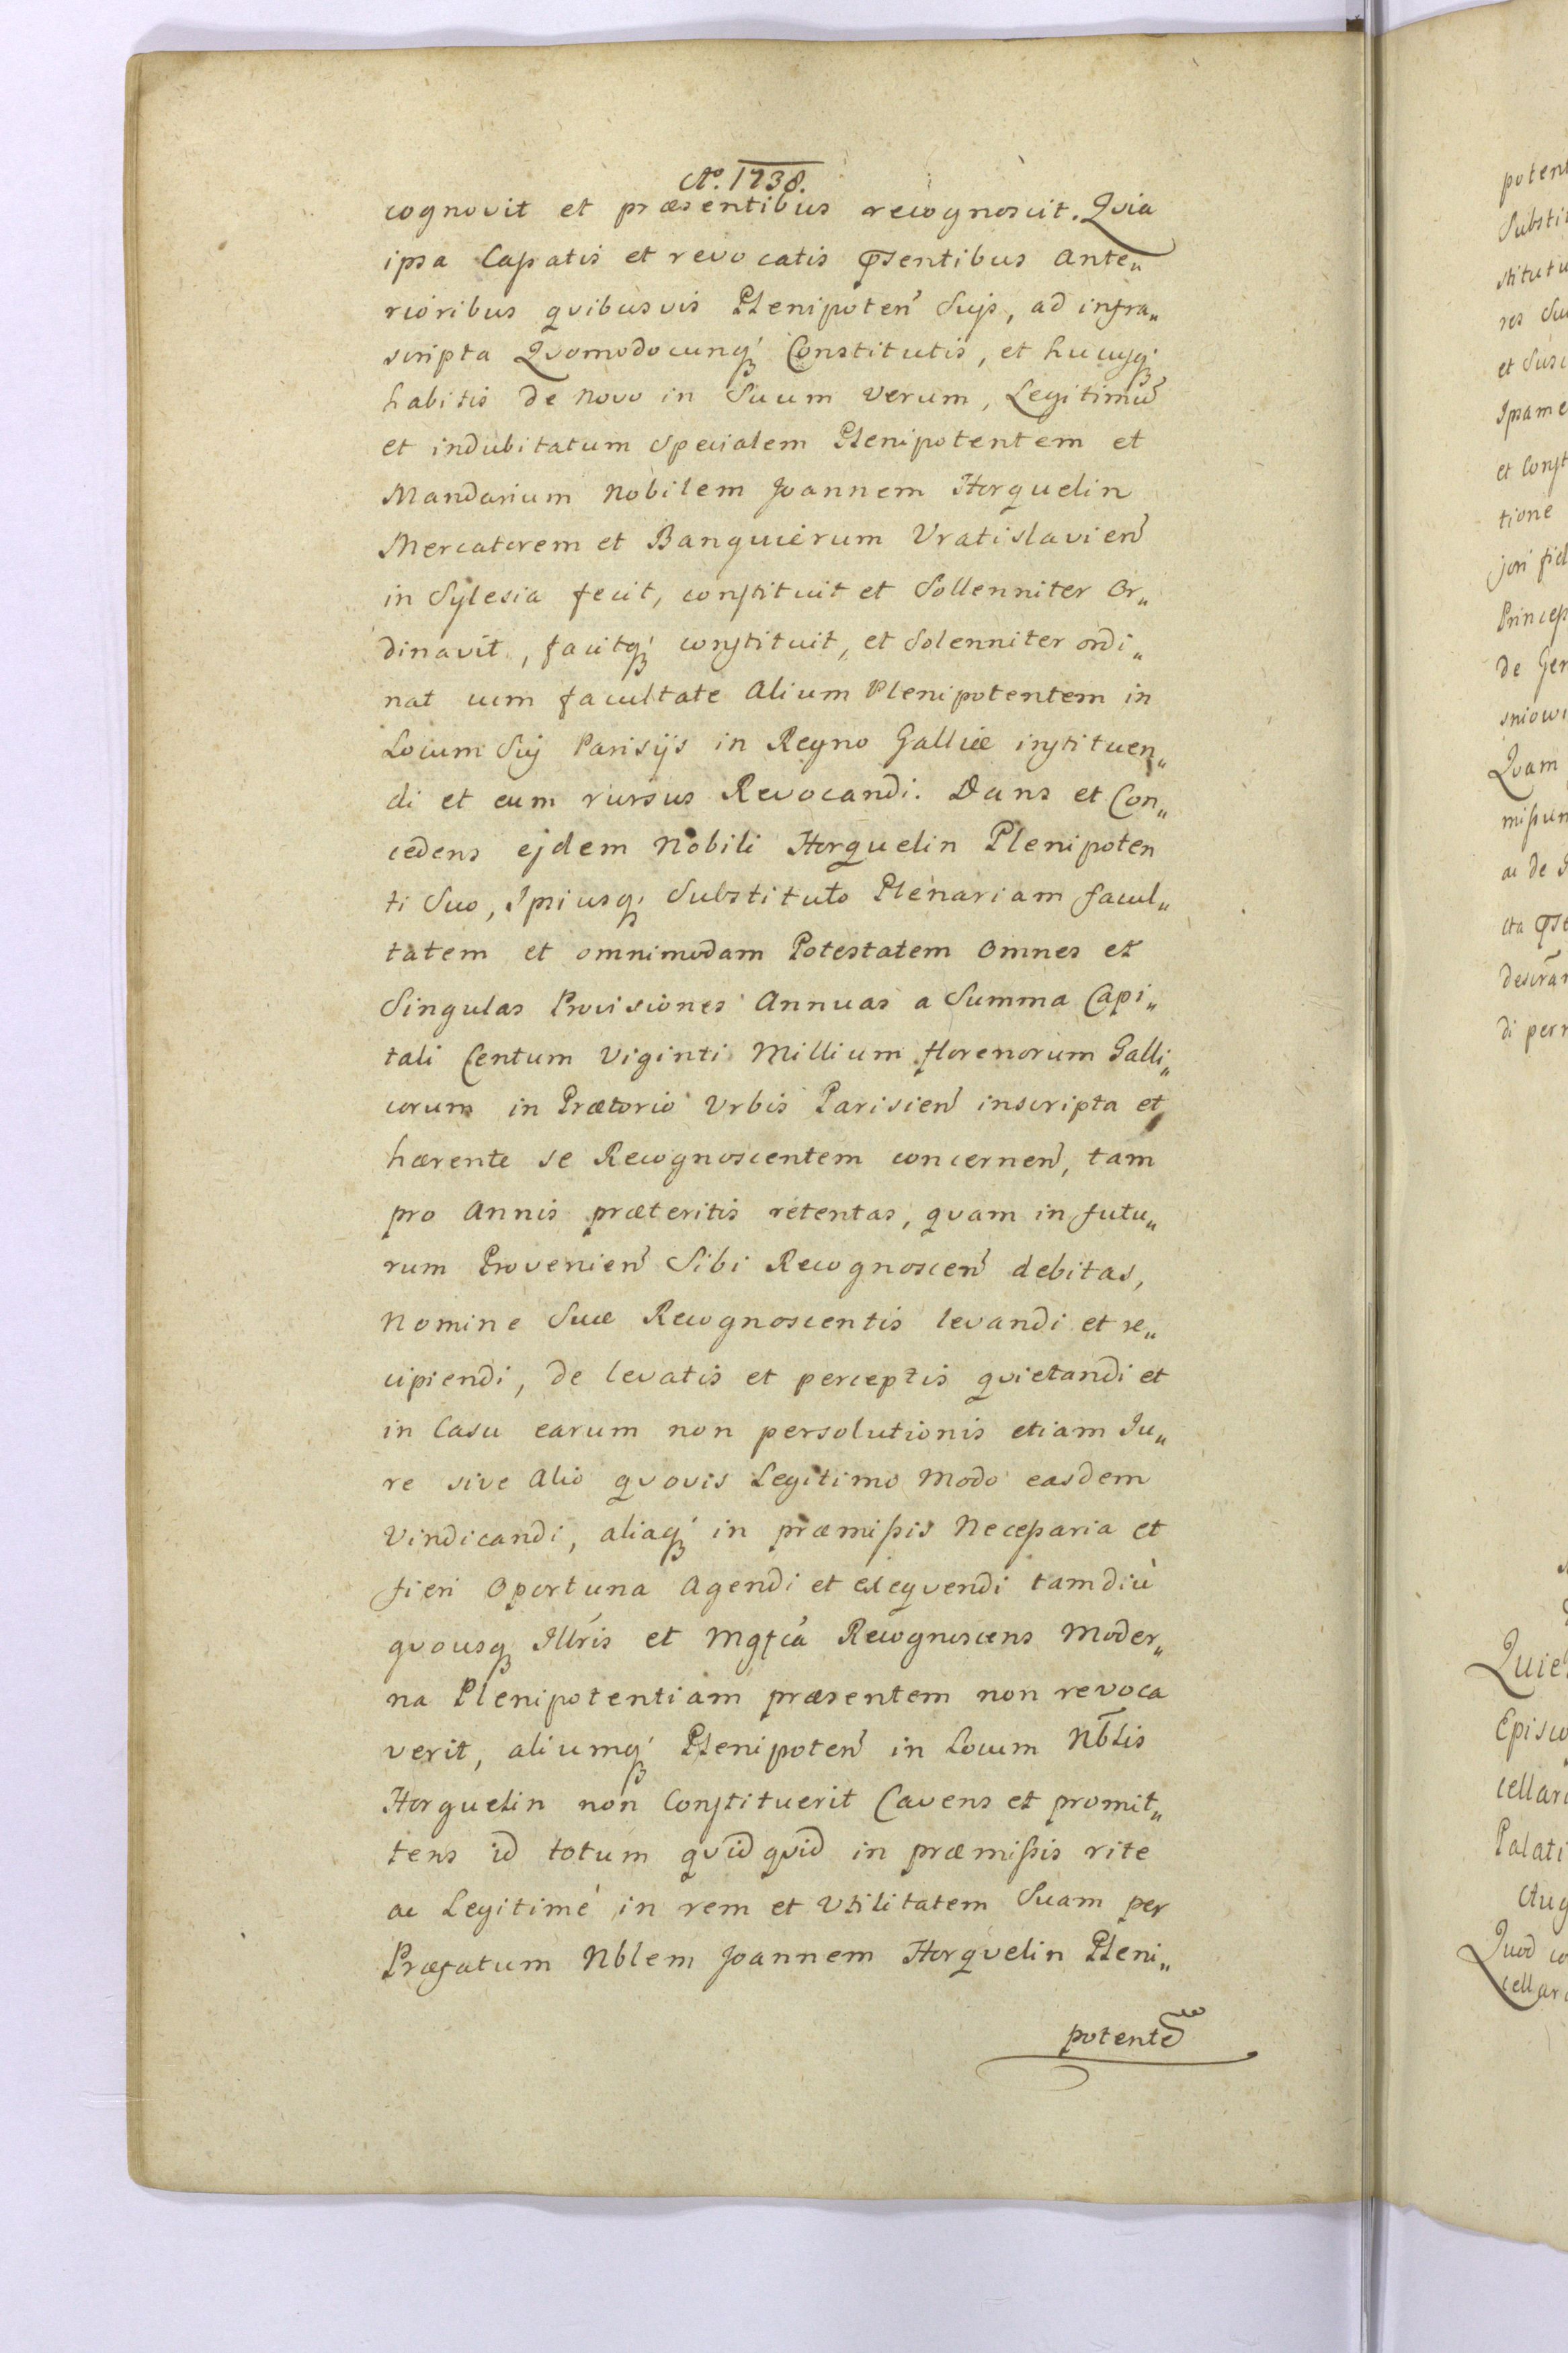 Aº. 1738.
cognovit et præsentibus recognoscit. Qvia
ipsa Cassatis et revocatis p̄sentibus Ante„
rioribus qvibusvis Plenipoteñ Suis, ad infra„
scripta Qvomodocunq́ꝫ Constitutis, et hucusq́ꝫ
habitis de Novo in Suum Verum, Legitimũ
et indubitatum Specialem Plenipotentem et
Mandarium Nobilem Joannem Horguelin
Mercatorem et Banquierum Vratislavieñ
in Sylesia fecit, constituit et Sollenniter Or„
dinavit, facitq́ꝫ constituit, et Solenniter ordi„
nat cum facultate Alium Plenipotentem in
Locum Sui Parisijs in Regno Galliæ instituen„
di et eum rursus Revocandi. Dans et Con„
cedens ejdem Nobili Horguelin Plenipoten
ti Suo, Ipsiusq́ꝫ Substituto Plenariam facul„
tatem et omnimodam Potestatem Omnes et
Singulas Provisiones Annuas a Summa Capi„
tali Centum Viginti Millium florenorum Galli„
corum in Prætorio Vrbis Parisieñ inscripta et
hærente se Recognoscentem concerneñ, tam
pro Annis præteritis retentas, qvam in futu„
rum Provenieñ Sibi Recognosceñ debitas,
Nomine Suæ Recognoscentis levandi et re„
cipiendi, de levatis et perceptis qvietandi et
in Casu earum non persolutionis etiam Ju„
re sive Alio qvovis Legitimo Modo easdem
Vindicandi, aliaq́ꝫ in præmissis Necessaria et
fieri Oportuna Agendi et exeqvendi tamdiù
qvousqꝫ Illr̃is et Mgfca Recognoscens Moder„
na Plenipotentiam præsentem non revoca
verit, aliumq́ꝫ Plenipoteñ in Locum Nb̃lis
Horguelin non Constituerit Cavens et promit„
tens id totum qvidqvid in præmissis rite
ac Legitimè in rem et Vtilitatem Suam per
Præfatum Nblem Joannem Horqvelin Pleni„
potentẽ
poten
Substi
stitutu
res Su
et Susc
Ipsame
et Const
tione
jori fid
Princep
de Ger
sniowi
Qvam
missum
ac de
cta p̄se
descrãr
di per
Quie
Episco
cellar
Palati
Aug
Quod co
cellar